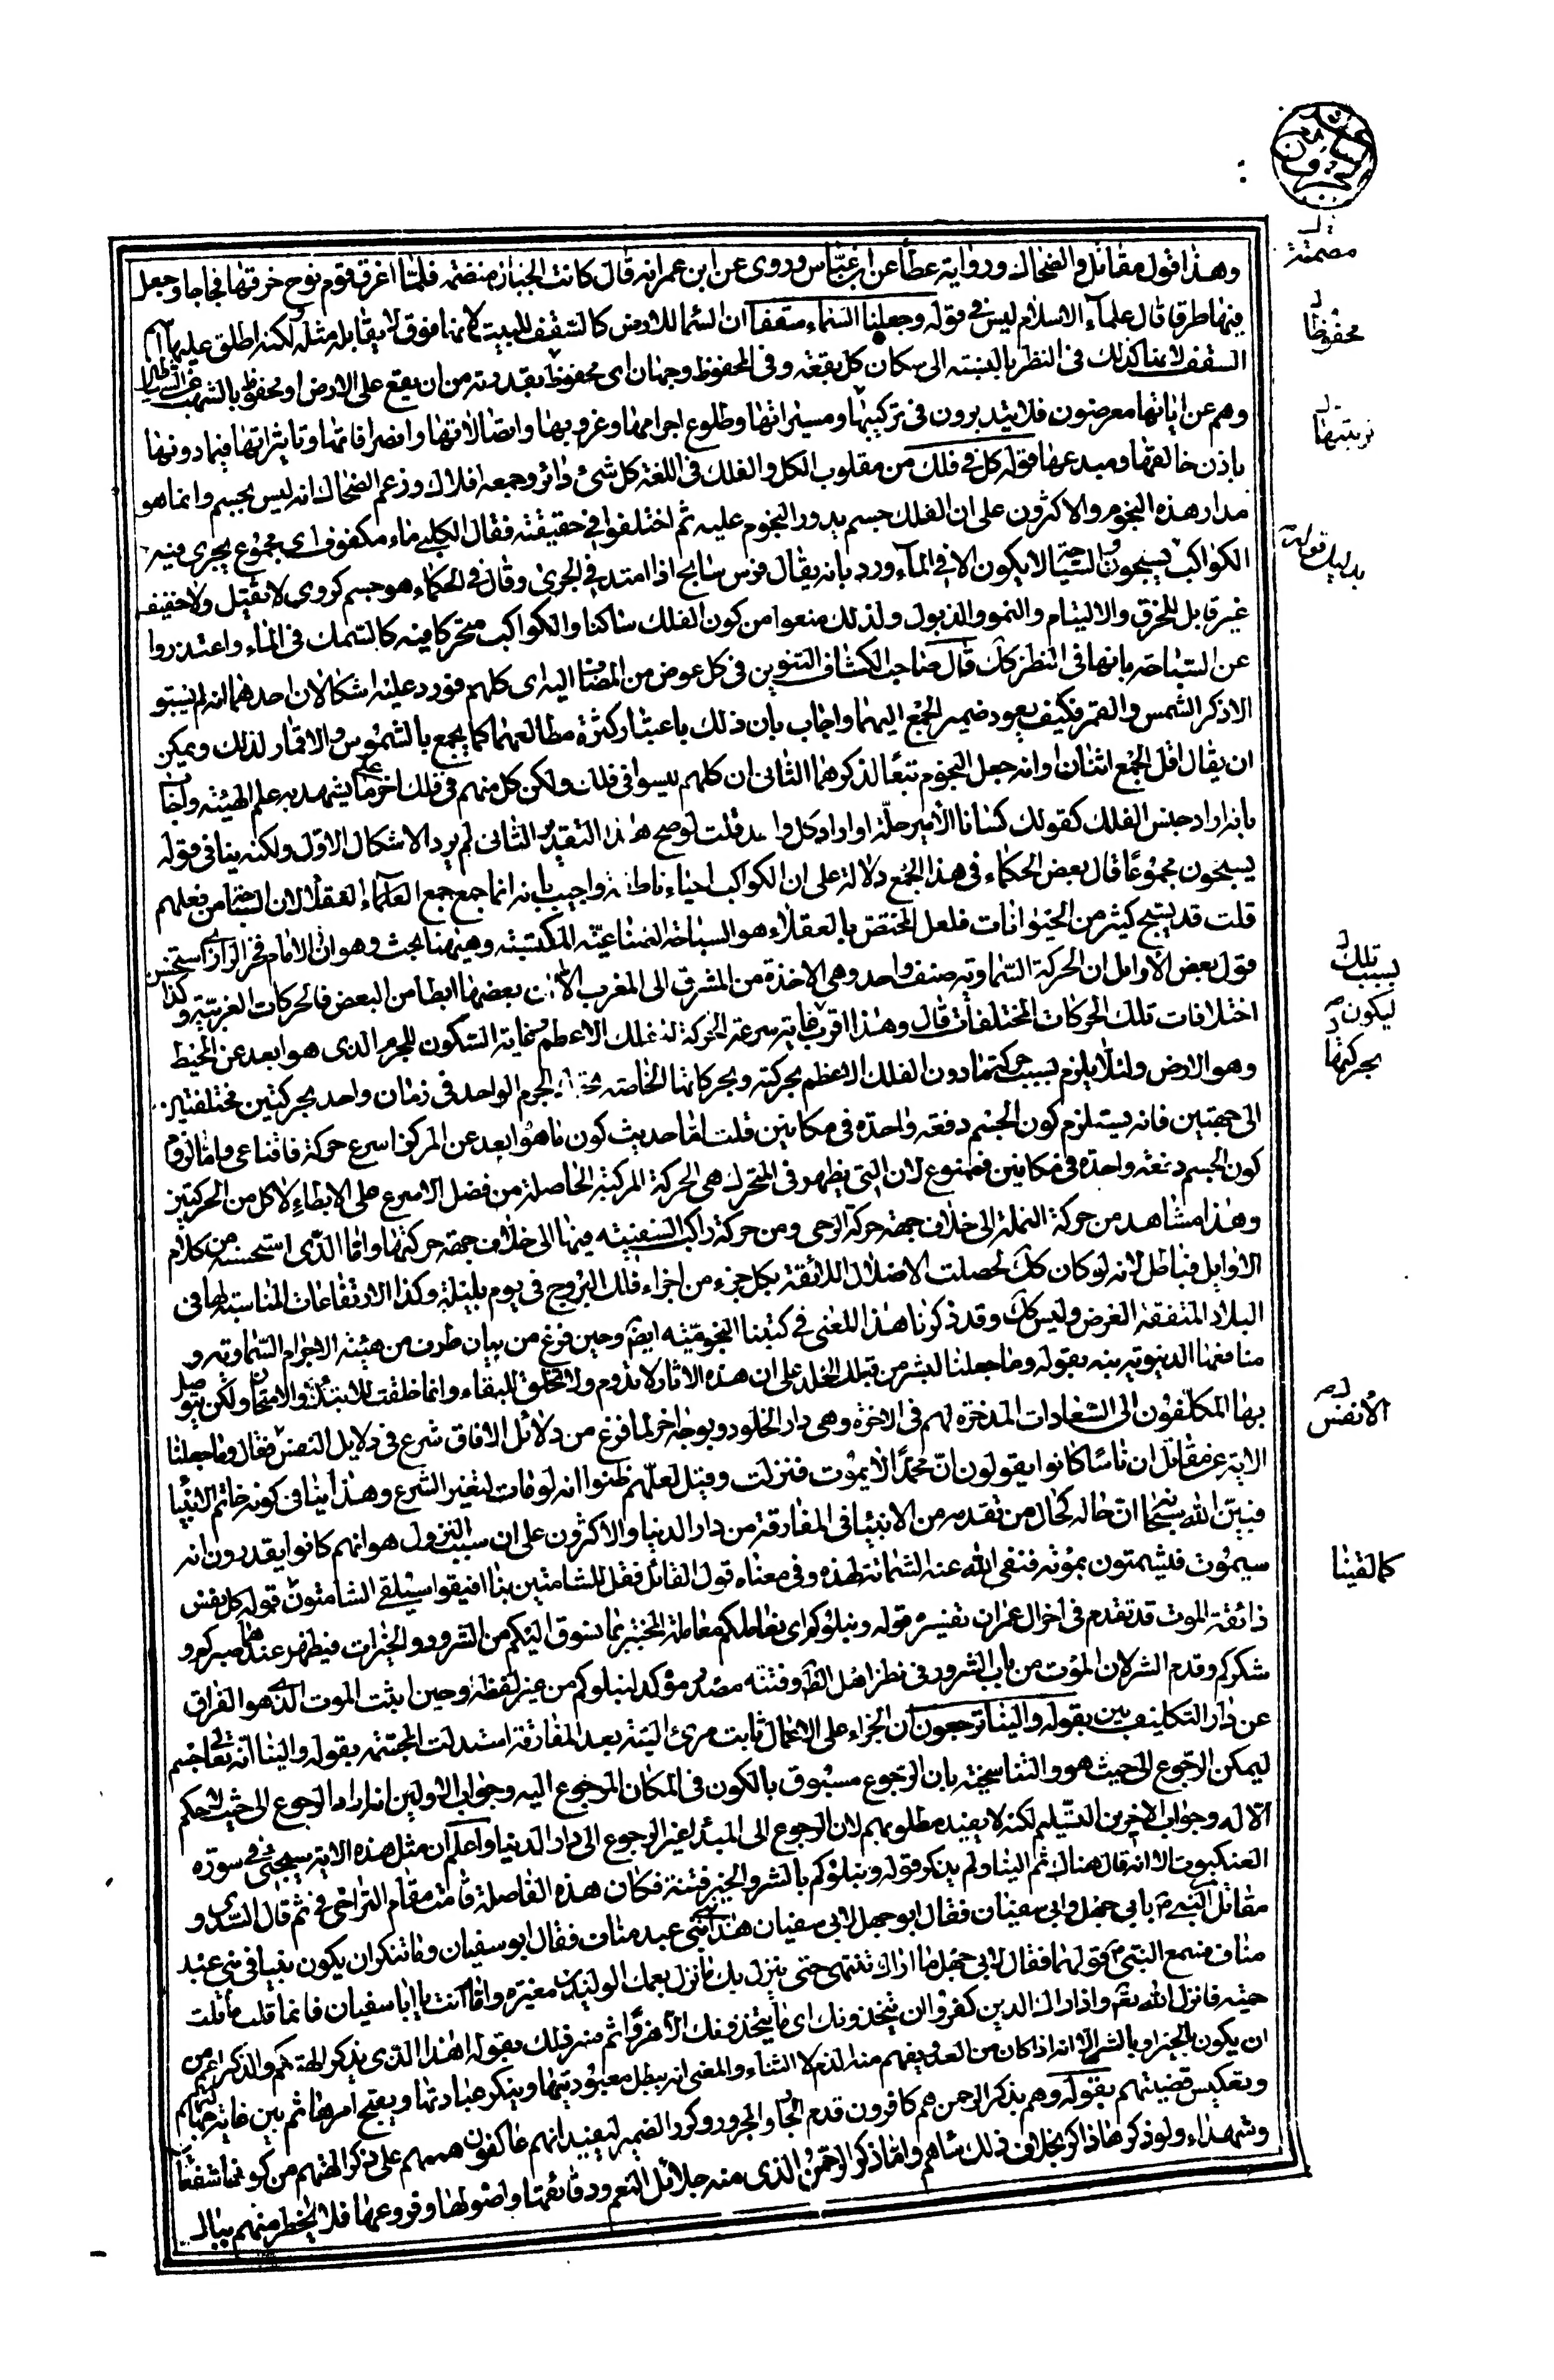 وهذا قول مقاتل والضحاك ورواية عطا عن ابن عباس وروى عن ابن عمر انه قال كانت الجبال منضمة فلما اغرق قوم نوح خرقها فجاجا وجعل
فيها طرقا قال علماء الاسلام ليس في قوله وجعلنا السماء سقفا ان السما للارض كالسقف للبيت لانما فوق لا يقابله مثله لكنه اطلق عليها
السقف لانها كذلك في النظر بالنسبة الى سكان كل بقعة وفي المحفوظ وجهان اى محفوظ بقدرته من ان يقع على الارض او محفوظ بالشهب عن الشياطين
وهم عن اياتها معرضون فلا يتدبرون في تركيبها ومسيراتها وطلوع اجرامها وغروبها واتصالاتها وانصرافاتها وتاثيراتها فيما دونها
باذن خالقها ومبدعها قوله كل في فلك من مقلوب الكل والفلك في اللغة كل شئ دائر وجمعه افلاك وزعم الضحاك انه ليس بجسم وانما هو
مدار هذه النجوم والاكثرون على ان الفلك جسم يدور النجوم عليه ثم اختلفوا في حقيقته فقال الكلبي ماء مكفوف اى مجموع يجرى فيه
الكواكب يسبحون والسباحة لا يكون الا في الماء ورد بانه يقال فرس سابح اذا امتد في الجرى وقال الحكماء هو جسم كروى لا ثقيل ولا خفيف
غير قابل للخرق والالتيام والنمو والذبول ولذلك منعوا من كون الفلك ساكنا والكواكب متحركا فيه كالسمك في الماء واعتذروا
عن السباحة بانها في النظر كك قال صاحب الكشاف التنوين في كل عوض من المضاف اليه اى كلهم فورد عليه اشكالان احدهما انه لم يسبق
الا ذكر الشمس والقمر فكيف يعود ضمير الجمع اليهما واجاب بان ذلك باعتبار كثرة مطالعهما كما يجمع بالشموس والاقمار لذلك ويمكن
ان يقال اقل الجمع اثنان او انه جعل النجوم تبعا لذكرهما الثانى ان كلهم ليسوا في فلك ولكن كل منهم في فلك اخر على ما يشهد به علم الهيئة واجاب
بانه اراد جنس الفلك كقولك كسانا الامير حلة او اراد كل واحد قلت لو صح هذا التقدير الثانى لم يرد الاشكال الاول ولكنه ينافى قوله
يسبحون مجموعا قال بعض الحكماء في هذا الجمع دلالة على ان الكواكب احياء ناطقة واجيب بانه انما جمع جمع العقلاء لان السباحة من فعلهم
قلت قد يسبح كثير من الحيوانات فلعل المختص بالعقلاء هو السباحة الصناعية المكتسبة وههنا بحث وهو ان الامام فخر الرازى استحسن
قول بعض الاوايل ان الحركة السماوية صنف واحد وهى الاخذة من المشرق الى المغرب الا ان بعضها ابطا من البعض فالحركات الغربية وكذا
اختلافات تلك الحركات المختلفات قال وهذا اقرب غاية سرعة الحركة للفلك الاعظم وغاية السكون للجرم الذى هو ابعد عن المحيط
وهو الارض ولئلا يلزم بسبب حركة ما دون الفلك الاعظم بحركته وبحركاتها الخاصة الجرم الواحد في زمان واحد بحركتين مختلفتين
الى جهتين فانه يستلزم كون الجسم دفعة واحدة في مكانين قلت اما حديث كون ما هو ابعد عن المركز اسرع حركة فاقناعى واما لزوم
كون الجسم دفعة واحدة في مكانين فممنوع لان التى يظهر في المتحرك هى الحركة المركبة الحاصلة من فضل الاسرع على الابطاء لا كل من الحركتين
وهذا مشاهد من حركة النملة الى خلاف جهة حركة الرحى ومن حركة راكب السفينة فيها الى خلاف جهة حركتها واما الذى استحسنه من كلام
الاوايل فباطل لانه لو كان كك لحصلت الاضلال اللائقة بكل جزء من اجزاء فلك البروج في يوم بليلة وكذا الارتفاعات المناسبة لها في
البلاد المتفقة العرض وليس كك وقد ذكرنا هذا المعنى في كتبنا النجومية ايضا وحين فرغ من بيان طرف من هيئة الاجرام السماوية و
منافعها الدنيوية بنه بقوله وما جعلنا لبشر من قبلك الخلد على ان هذه الاثار لا تدوم ولا تخلق للبقاء وانما خلقت للابتلاء والامتحان ولكن يتوصل
بها المكلفون الى السعادات المدخرة لهم في الاخرة وهى دار الخلود وبوجه اخر لما فرغ من دلائل الافاق شرع في دلايل النفس فقال وما جعلنا
الاية عن مقاتل ان ناسا كانوا يقولون ان محمدا لا يموت فنزلت وقيل لعلهم ظنوا انه لو مات لتغير الشرع وهذا ينافى كونه خاتم الانبياء
فبين الله سبحانه ان حاله كحال من تقدمه من الانبياء في المفارقة من دار الدنيا والاكثرون على ان سبب النزول هو انهم كانوا يقدرون انه
سيموت فيشمتون بموته فنفى الله عنه الشماتة لهذه وفي معناه قول القائل فقل للشامتين بنا افيقوا سيلقى الشامتون قوله كل نفس
ذائقة الموت قد تقدم في اخر ال عمران تفسيره قوله ونبلوكم اى نعاملكم معاملة المختبر بما نسوق اليكم من الشرور والخيرات فيظهر عندهما صبركم و
شكركم وقدم الشر لان الموت من باب الشرور في نظر اهل الظاهر وفتنة مصدر مؤكد لنبلوكم من غير لفظه وحين اثبت الموت الذى هو الفراق
عن دار التكليف بين بقوله والينا ترجعون ان الجزاء على الاعمال ثابت مرئ البتة بعد المفارقة استدلت المجسمة بقوله والينا انه تعالى جسم
ليمكن الرجوع الى حيث هو والتناسخية بان الرجوع مسبوق بالكون في المكان المرجوع اليه وجواب الاولين انه اراد الرجوع الى حيث لا حكم
الا له وجواب الاخرين التسليم لكنه لا يفيد مطلوبهم لان الرجوع الى المبدأ غير الرجوع الى دار الدنيا واعلم ان مثل هذه الاية سيجئ في سورة
العنكبوت الا انه قال هناك ثم الينا ولم يذكر قوله ونبلوكم بالشر والخير فتنة فكان هذه الفاصلة قامت مقام التراخى في ثم قال السدى و
مقاتل النبي م بابى جهل وابى سفيان فقال ابو جهل لابى سفيان هذا نبى عبد مناف فقال ابو سفيان وما تنكر ان يكون نبيا في بنى عبد
مناف فسمع النبى قولهما فقال لابى جهل ما اراك تنتهى حتى ينزل بك ما نزل بعمك الوليد بن مغيرة واما انت يا ابا سفيان فانما قلت ما قلت
حمية فانزل الله تعم واذا راك الذين كفروا ان يتخذونك اى ما يتخذونك الا هزوا ثم فسر ذلك بقوله اهذا الذى يذكر الهتكم والذكر اعم من
ان يكون بالخير او بالشر الا انه اذا كان من العدو يفهم منه الذم لا الثناء والمعنى انه يبطل معبوديتها وينكر عبادتها ويقبح امرها ثم بين غاية جهالتهم
وبعكس قضيتهم بقوله وهم بذكر الرحمن هم كافرون قدم الجار والمجرور وكرر الضمير ليفيد انهم عاكفون هممهم على ذكر الهتهم من كونها شفعاء
وشهداء ولو ذكرها ذاكر بخلاف ذلك ساءهم واما ذكر الرحمن الذى منه جلائل النعم ودقائقها واصولها وفروعها فلا يخطر منهم ببال
مصمتة
محفوظا
تربيتها
بدليل قوله
بسبب تلك
ليكون
بحركتها
الانفس
كما لقينا